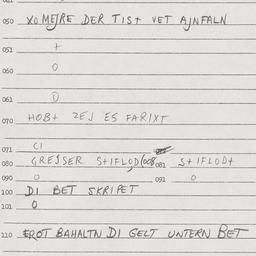 050 XOMEJRE DER TIS+ VET AJNFALN
051 +
060 O
061 O
070 HOB+ ZEJ ES FARIXT
071 CI
080 GRESER S+IFLOD(008 081 S+IFLOD+
090 O 091 O
100 DI BET SKRIPET
101 O
110 EROT BAHALTN DI GELT UNTERN BET